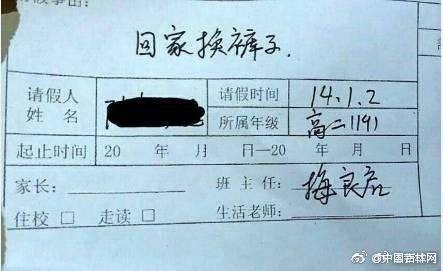 回家换裤子.
请假人姓名 请假时间 14.1.2
所属年级 高二1191
起止时间 20 年 月 日—20 年 月 日
家长: 班主任:
住校 □ 走读 □ 生活老师:
@中国吉林网